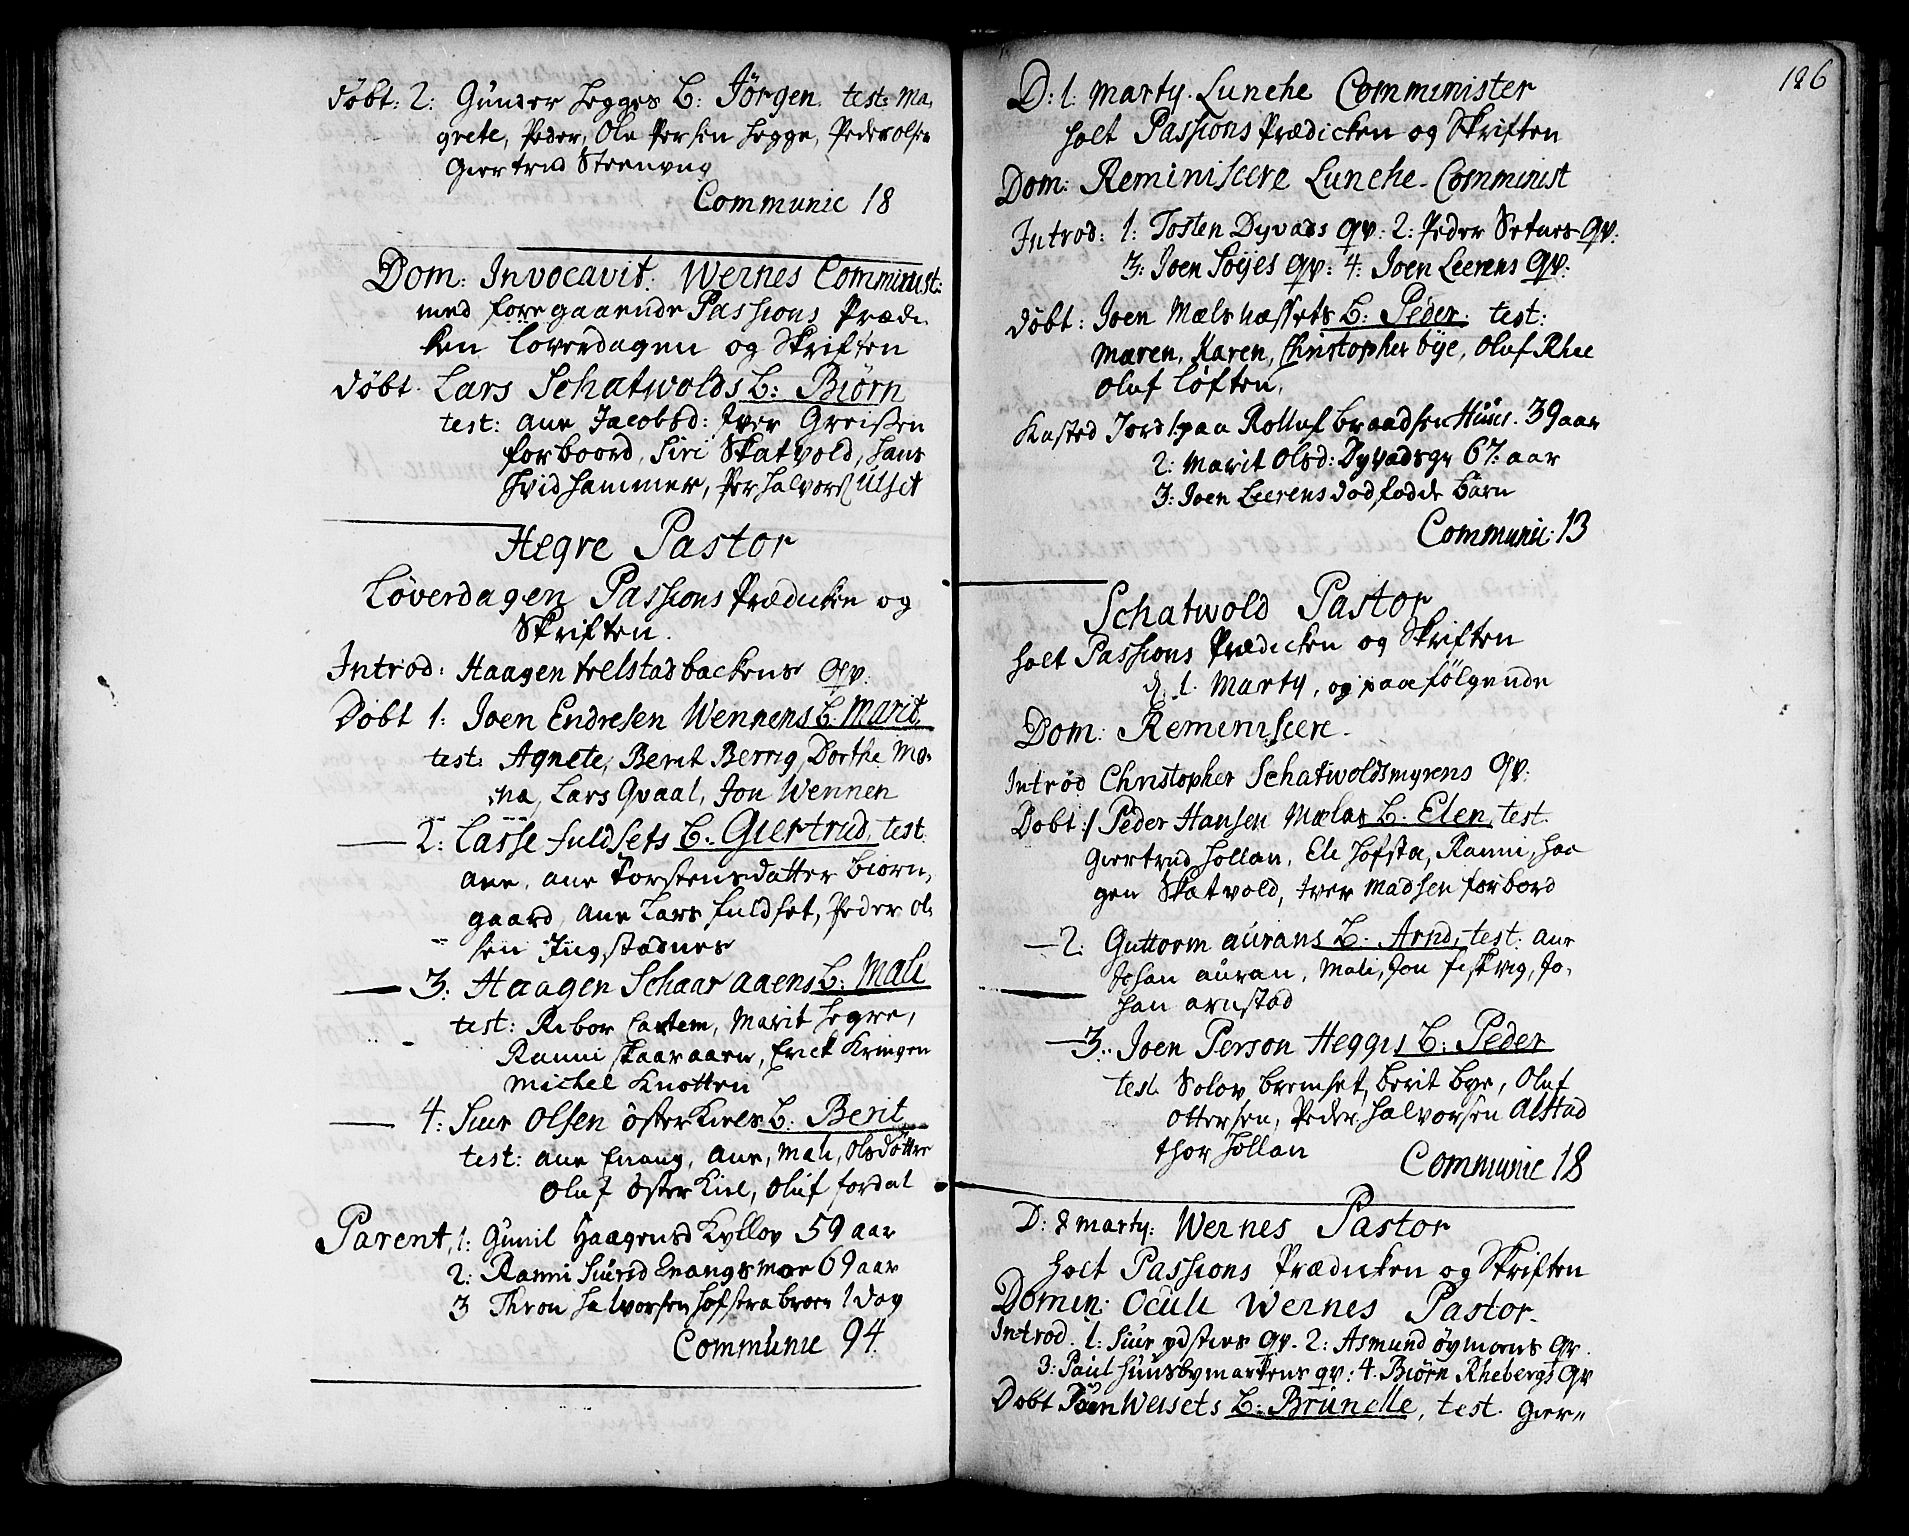 döbt: 2: Gunder Hegges B: Jörgen. test: Ma,
grete, Peder, Ole Persen Hegge, Peder olsen
Giertrud Steenvng
Communic 18
Dom: Invocavit. Wernes Comminist:
med foregaaende Passions Prædi
ken Löverdagen og Skriften
döbt. Lars Schatwolds B: Biörn
test: Ane Jacobsd: Iver Greissen
forboord, Siri Skatvold, Hans
Hvidhammer, Per Halvors Ulset
Hegre Pastor
Löverdagen Passions Prædicken og
Skriften.
Introd: Haagen Trelstadbackens qv:
Döbt 1: Joen Endresen Wennens B. Marit
test: Agnete, Berit Berrig, Dorthe Mo,
na, Lars Qvaal, Jon Wennen
2: Lasse Fuldsets B. Giertrud, test
Ane, Ane Torstensdatter Biorn,
gaard, Ane Lars Fuldset, Peder ol,
sen Jngstadnes
3: Haagen Schaaraaens B: Mali
test: Rebor Castem, Marit Hegre,
Ranni Skaaraaen, Erick Kringen
Michel Knotten
4: Siur Olsen österkiels B: Berit
test: Ane Enang, Ane, Mali, Olsdötter
Oluf österkiel, Oluf fordal
Parent, 1: Gunil Haagensd Kyllov 59 aar
2: Ranni Siursd Enangsmoe 69 aar
3 Thron Halvorsen Hofstrabroen 1 dag
Communic 94.
126
D: 1. Marty. Lunche Comminister
holt Passions Prædicken og Skriften
Dom: Reminiscere Lunche. Comminist
Introd: 1: Tosten Dyvads qv: 2: Peder Setnes qv:
3: Joen Söyes qv: 4: Joen Leerens qv:
döbt: Joen Mælsnæssets B: Peder. test:
Maren, Karen, Christopher öye, Oluf Rhee
Oluf Löften,
Kasted Jord 1. paa Rolluf Braadsen Huus. 39 aar
2: Marit Olsd: Dyvadsgr 67: aar
3: Joen Leerens dødfødde Barn
Communic: 13
Schatwold Pastor
holt Passions Prædicken og Skriften
d. 1. Marty, og paa fölgende
Dom: Reminiscere.
Introd Christopher Schatwoldsmyrens qv:
Döbt: 1 Peder Hansen Mælas B. Elen, test.
Giertrud Hollan, Eli Hofsta, Ranni, Haa
gen Skatvold, Iver Madsen forbord
2: Guttorm aurans B. Arnd, test: Ane
Johan Auran, Mali, Jon Fiskvig, Jo,
han Arnstad
3: Joen Person Hegges B: Peder
test. Solov Bremset, Berit Bye, Oluf
Ottersen, Peder Halvorsen Alstad
Thor Hollan
Communic 18
D: 8 marty: Wernes Pastor
holt Passions Prædicken og Skriften
Domin: Oculi Wernes Pastor.
Introd. 1: Siur ydsties qv. 2: Asmund öymoens qv.
3: Paul Huusbymarkens qv: 4. Biörn Rhebergs qv
Döbt Joen Weisets B: Brunelle, test. Gier,,